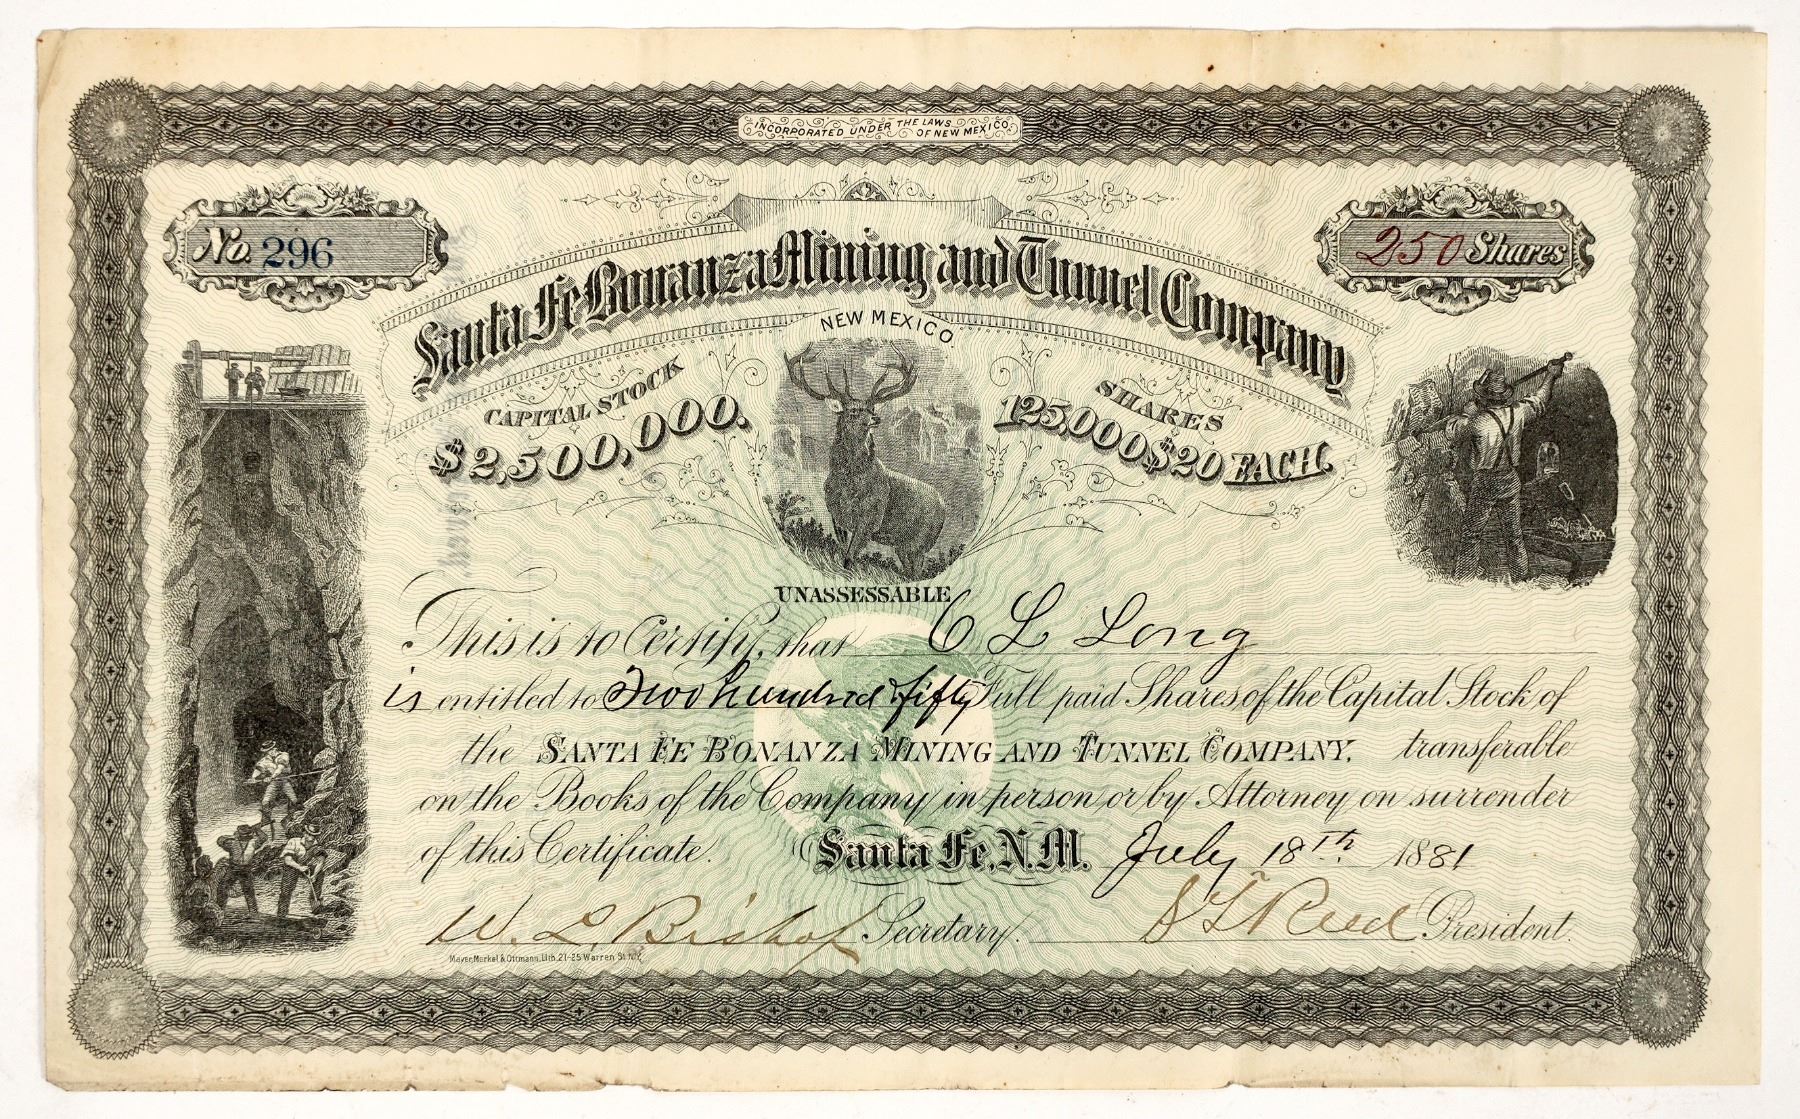 INCORPORATED UNDER THE LAWS OF NEW MEXICO.
No. 296
250 Shares
Santa Fe Bonanza Mining and Tunnel Company
NEW MEXICO
CAPITAL STOCK
$2,500,000.
SHARES
125,000 $20 EACH.
UNASSESSABLE
This is to Certify, that C L Long
is entitled to Two hundred & fifty Full paid Shares of the Capital Stock of
the SANTA FE BONANZA MINING AND TUNNEL COMPANY, transferable
on the Books of the Company in person or by Attorney on surrender
of this Certificate. Santa Fe, N.M. July 18th 1881
W. L. Bishop Secretary. Reed President.
Mayer, Merkel & Ottmann, Lith. 21-25 Warren St. N.Y.